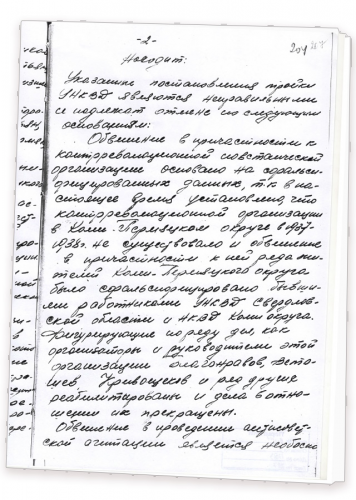 -2-
Находит:
Указанные постановления тройки
УНКВД являются неправильными
и подлежат отмене по следующим
основаниям:
Обвинение в причастности к
контрреволюционной повстанческой
организации основано на фальси-
фицированных данных, т.к. в на-
стоящее время установлено, что
контрреволюционной организации
в Коми-Пермяцком округе в 1937-
1938г. не существовало и обвинение
в причастности к ней ряда жи-
телей Коми-Пермяцкого округа
было сфальсифицировано бывши-
ми работниками УНКВД Свердлов-
ской области и НКВД Коми округа.
Фигурирующие по ряду дел, как
организаторы и руководители этой
организации Благонравов,
Кривощеков и ряд других
реабилитированы и дела в отно-
шении их прекращены.
Обвинение в проведении антисовет-
ской агитации является необосно